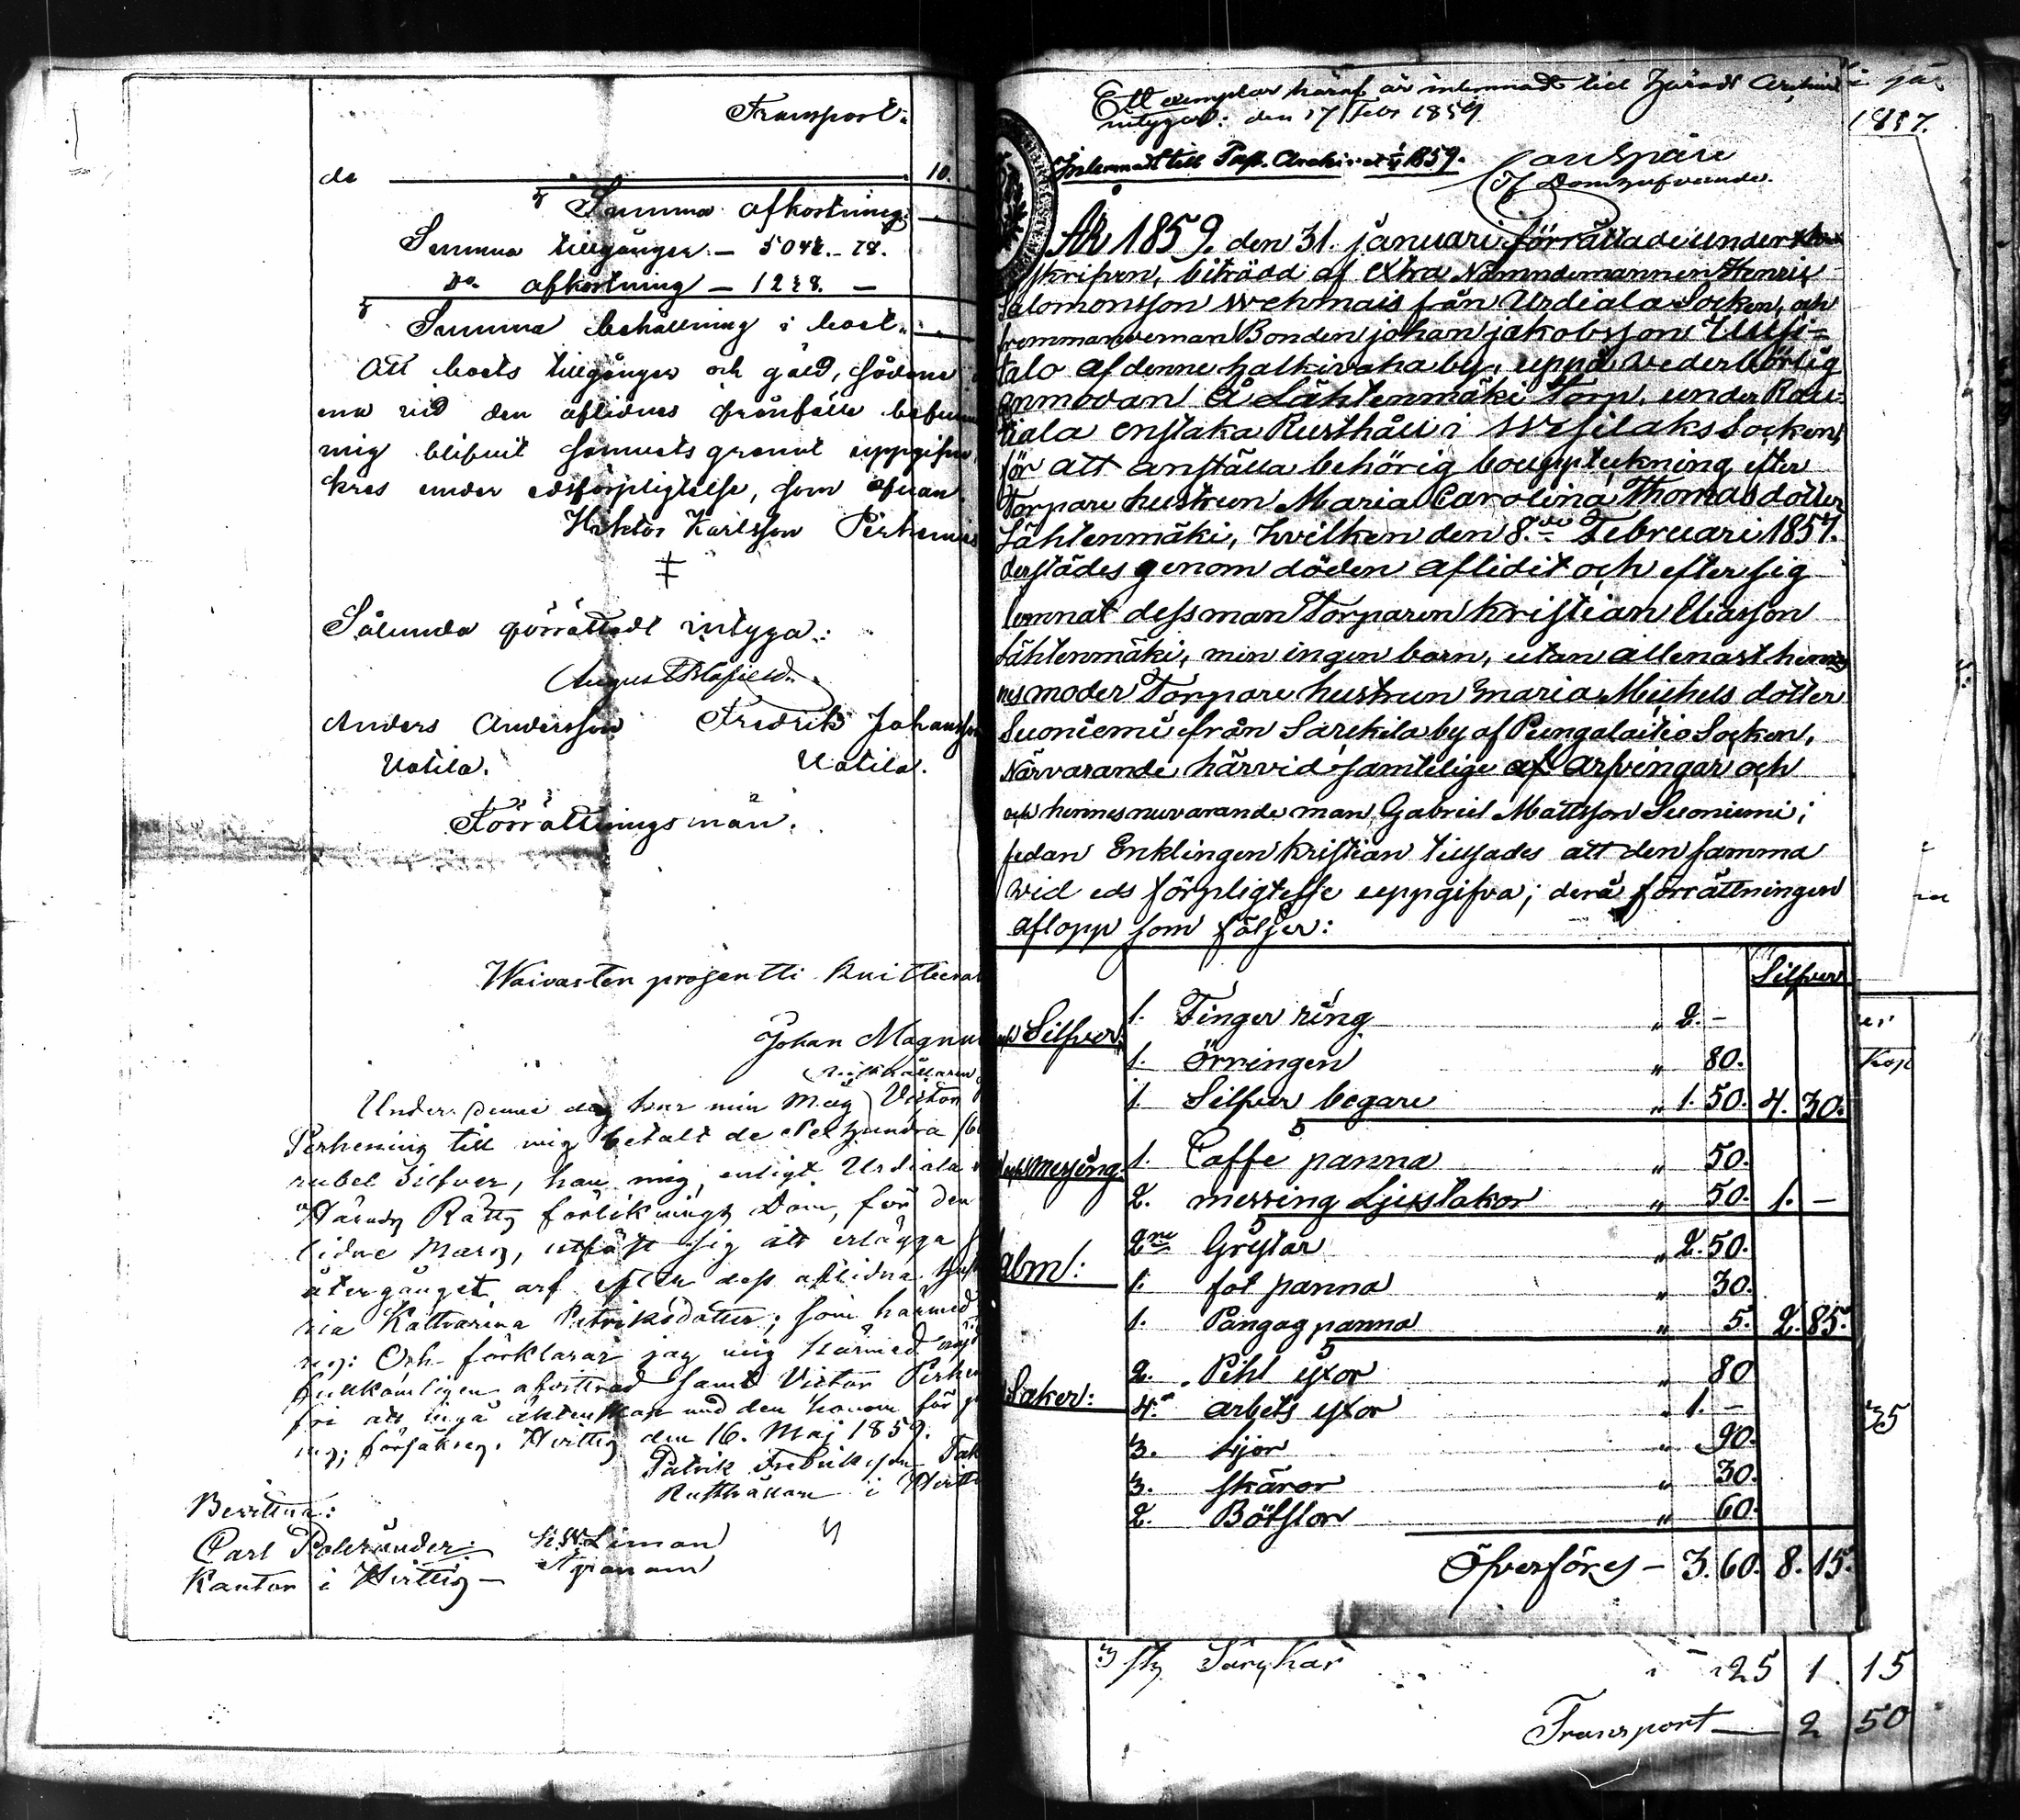 Transport:
do 10.
Summa afkortning:
Summa tillgångar — 5042.. 78.
Do afkortning — 1228. —
Summa behållning i boet..
Att boets tillgångar och gäld, sådane
ena vid den aflidnes frånfälle befun
mig blifvit samvetsgrant uppgifne
kras under edsförpligtelse, som ofvan
Hektor Karlsson Perhenie
Sålunda förrättadt intyga:
August Blåfield.
Anders Andersson Fredrik Johansson
Uotila. Uotila.
Förrättnings män.
Waivasten prosentti kuitteera
Johan Magnu
Under denne dag har min Måg Victor
Perhening till mig betalt de Sexhundra
rubel Silfver, han mig, enligt Urdiala
Härads Rätts förliknings Dom, för den
lidne Mars, utfäst sig att erlägga
återgånget arf efter dess aflidna
ria Kattarina Patriksdotter; som härmed
Och förklarar jag mig härmed
fullkomligen aforttrad samt Victor Perhe
fri att ingå äktenskap med den honom för
ing; försäkrez. Hvittis den 16. Maj 1859.
Patrik Fredriksson
Rusthållare i Hvitti
Bevittna:
Carl Polviander. Liman
Kantor i Hvittis — Agronom
Ett exemplar häraf är inlemnadt till Härads Archivet
intygar: den 17 Febr 1859.
Inlemnadt till Pap. Archivet 1859.
1857.
År 1859. den 31. januari förrättade under
skrifven, biträdd af extra Nämndemannen Henric
Salomonsson Wehmais från Urdiala Socken, och
Bonden johan jakobsson Uusi-
talo af denne Halkivaha by, uppå wederbörlig
anmodan å Lähtenmäki Torp, under Rau-
tiala enstaka Rusthåll i Wesilaks Socken,
för att anställa behörig bouppteckning efter
Torpare hustrun Maria Carolina Thomas dotter
Lähtenmäki, hvilken den 8.de Februari 1857.
derstädes genom döden aflidit och efter sig
lemnat dess man Torparen Kristian Eliasson
Lähtenmäki, men ingen barn, utan allenast hen
nes moder Torpare hustrun Maria Michels dotter
Suoniemi från Sarkila by af Pungalaitio Socken,
Närvarande härvid samtelige af arfvingar och
och hennes nuvarande man Gabriel Mattsson Suoniemi;
sedan Enklingen Kristian tillsades att den samma
vid eds förpligtesse uppgifva; derå förrättningen
aflopp som följer:
Silfver
Silfver: 1. Finger ring „ 2. –
1. Örringen „ 80.
1. Silfver begare „ 1. 50. 4. 30.
messing. 1. Caffe panna „ 50.
2. messing Ljusstakor „ 50. 1. –
2ne Grytor „ 2. 50.
1. fot panna „ 30.
1. Pangag panna „ 5. 2. 85.
Saker: 2. Pihl yxor „ 80
4. arbets yxor „ 1. –
3. Lijor „ 90.
3. skäror „ 30.
2. Böthlor „ 60.
Öfverföres – 3. 60. 8. 15.
Kop
35
3 st Särg kar 25 1 15
Transport — 2 50